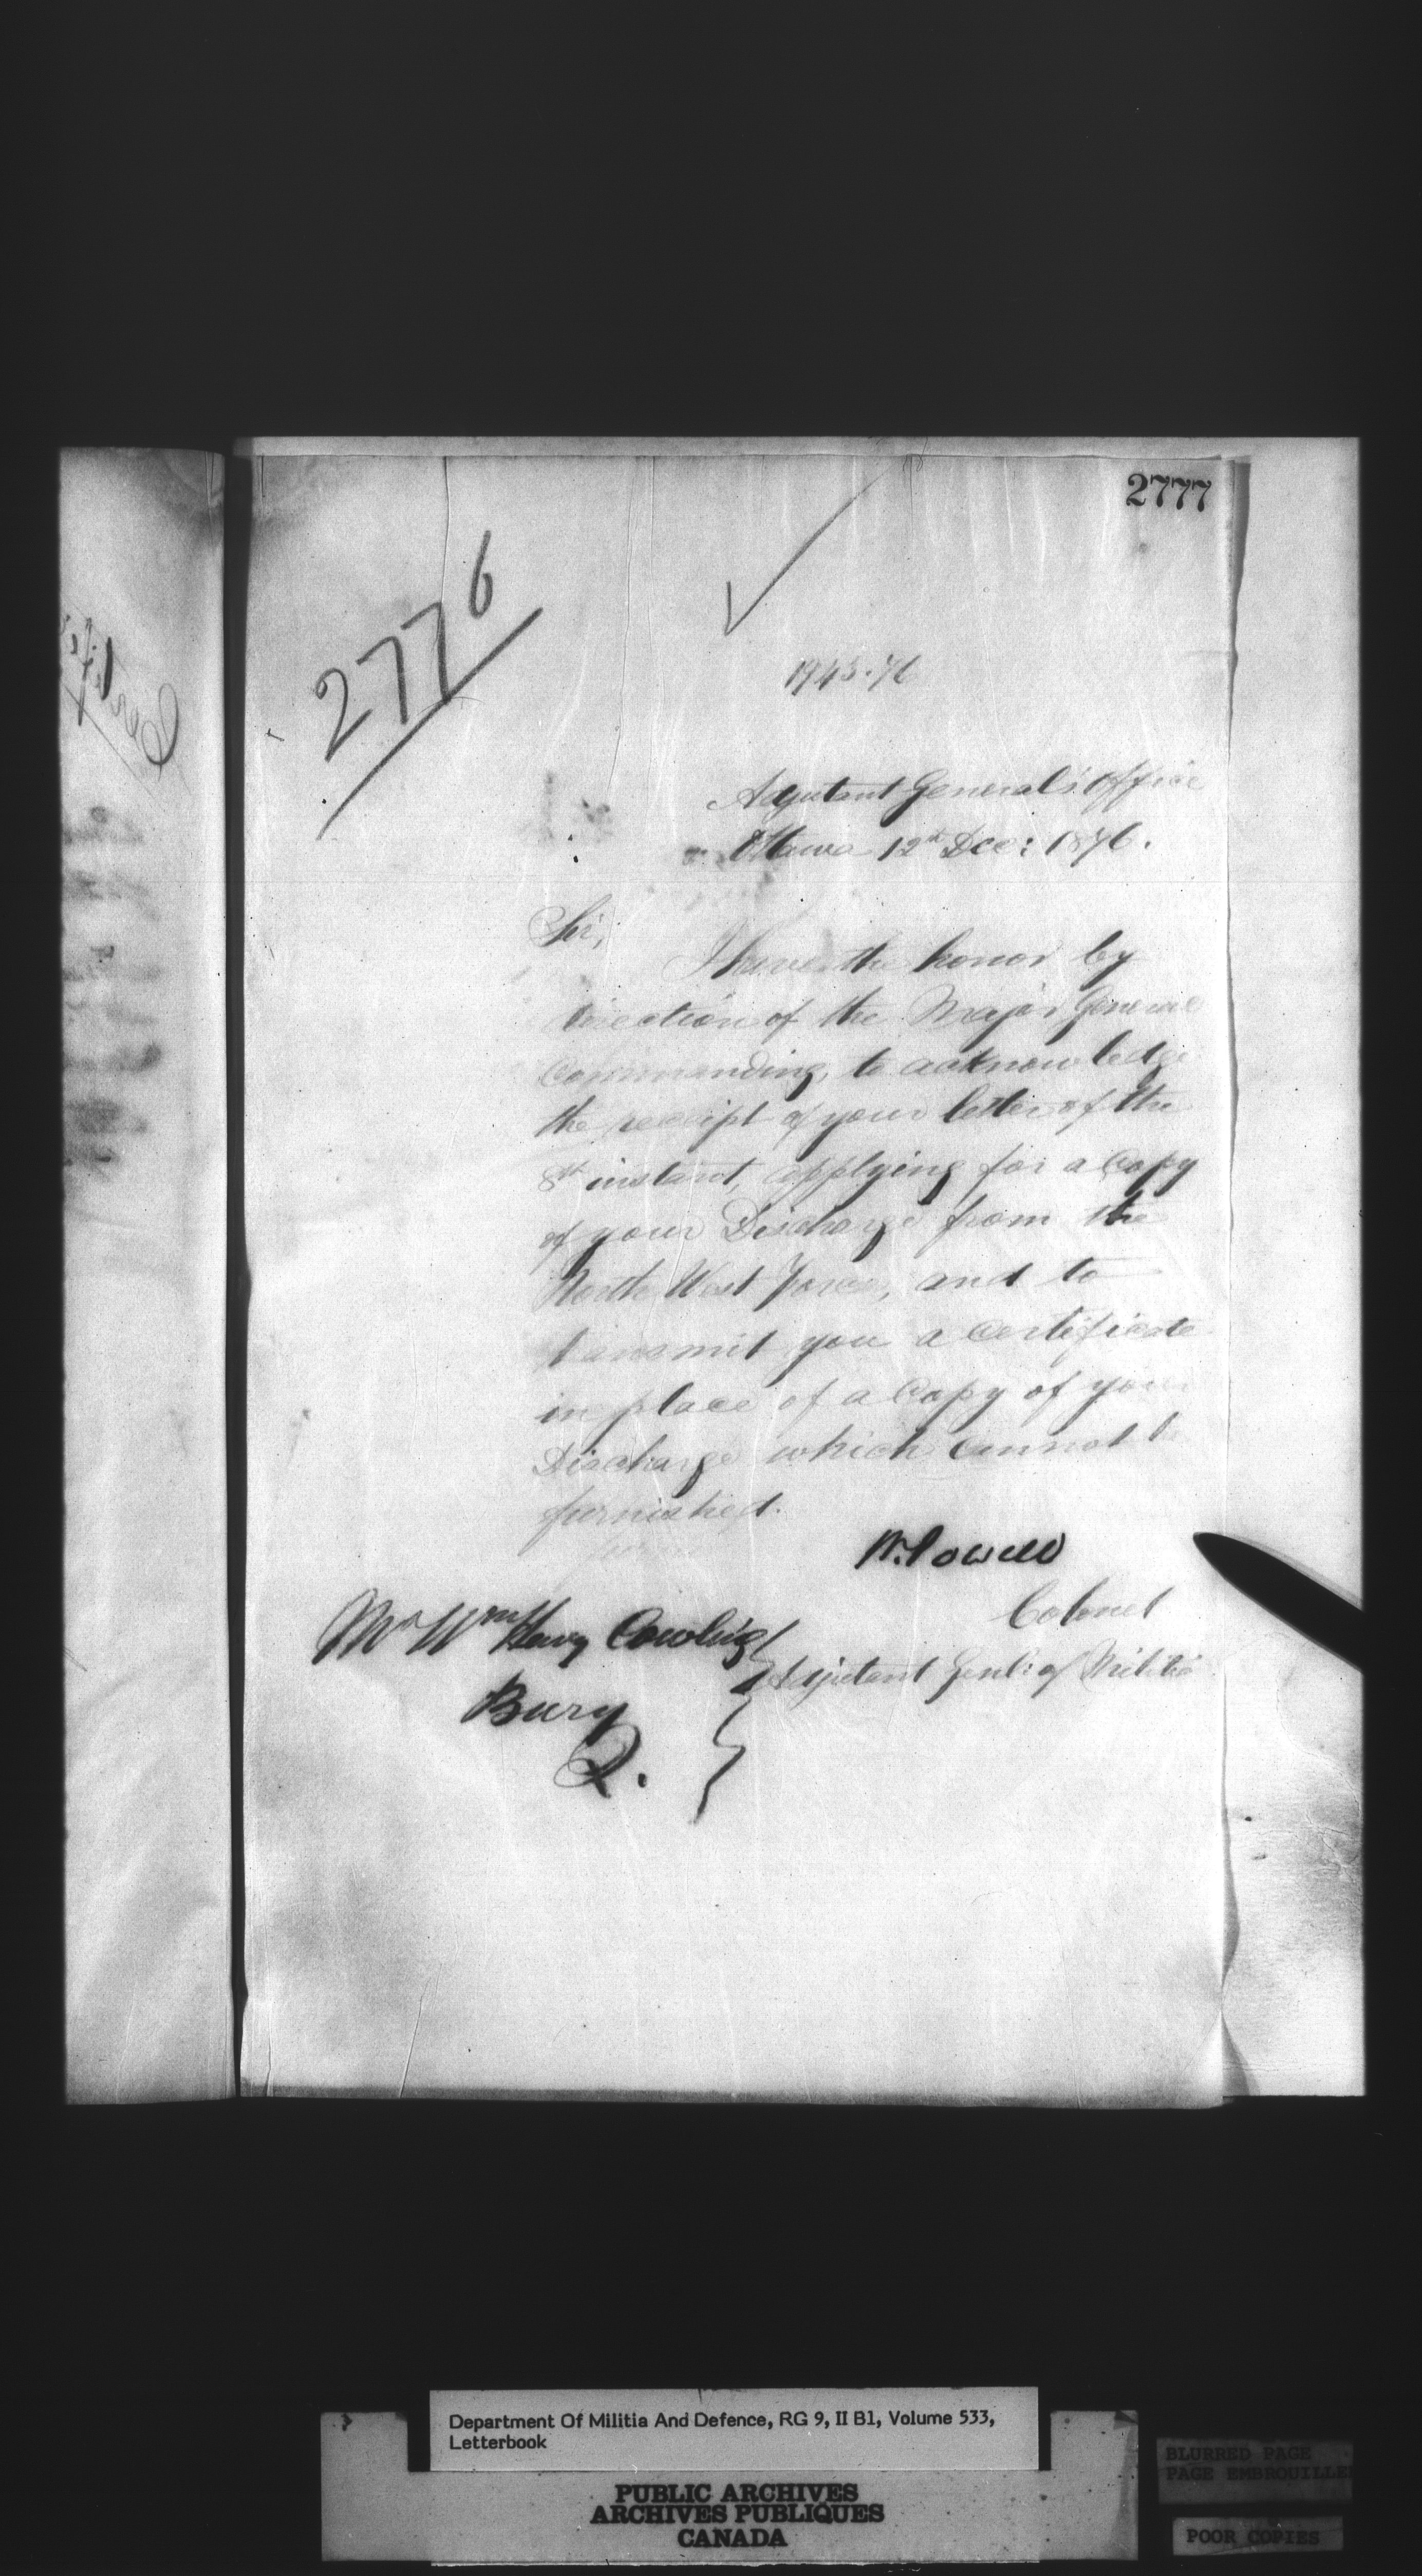 2777
2776
Adjutant General's Office
Ottawa 12th Dec: 1876.
Sir,
I have the honor by
direction of the Major General
Commanding, to acknowledge
the receipt of your letter of the
8th instant, applying for a Copy
of your Discharge from the
North West Force, and to
transmit you a Certificate
in place of a Copy of your
Discharge which cannot be
furnished.
W. Powell
Colonel
Adjutant Genl: of Militia
Mr Wm Henry Cowling
Bury
Q.
Department Of Militia And Defence, RG 9, II B1, Volume 533,
Letterbook
PUBLIC ARCHIVES
ARCHIVES PUBLIQUES
CANADA
BLURRED PAGE
PAGE EMBROUILLE
POOR COPIES